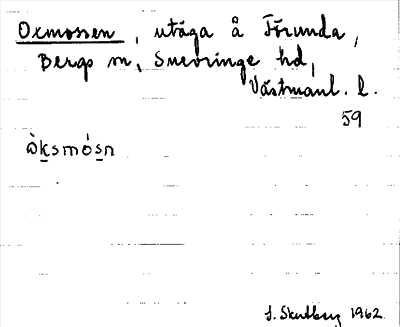 Oxmossen, utäga å Törunda,
Bergs sn, Snevringe hd,
Västmanl. l.
59
ὰksmósn
S. Skutberg 1962.